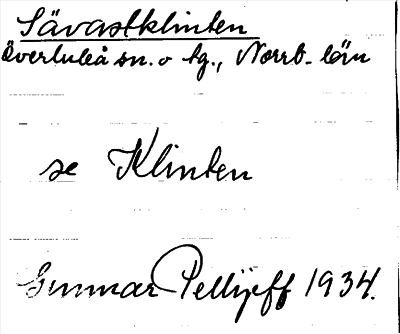 Sävastklinten
Överluleå sn. o tg., Norrb. län
se Klinten
Gunnar Pellijeff 1934.